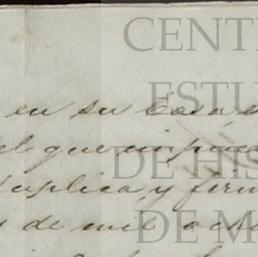 CENT
en su Casa, e
ESTU
el que
DE HIS
suplica y firm
s de mil ocho
DE M